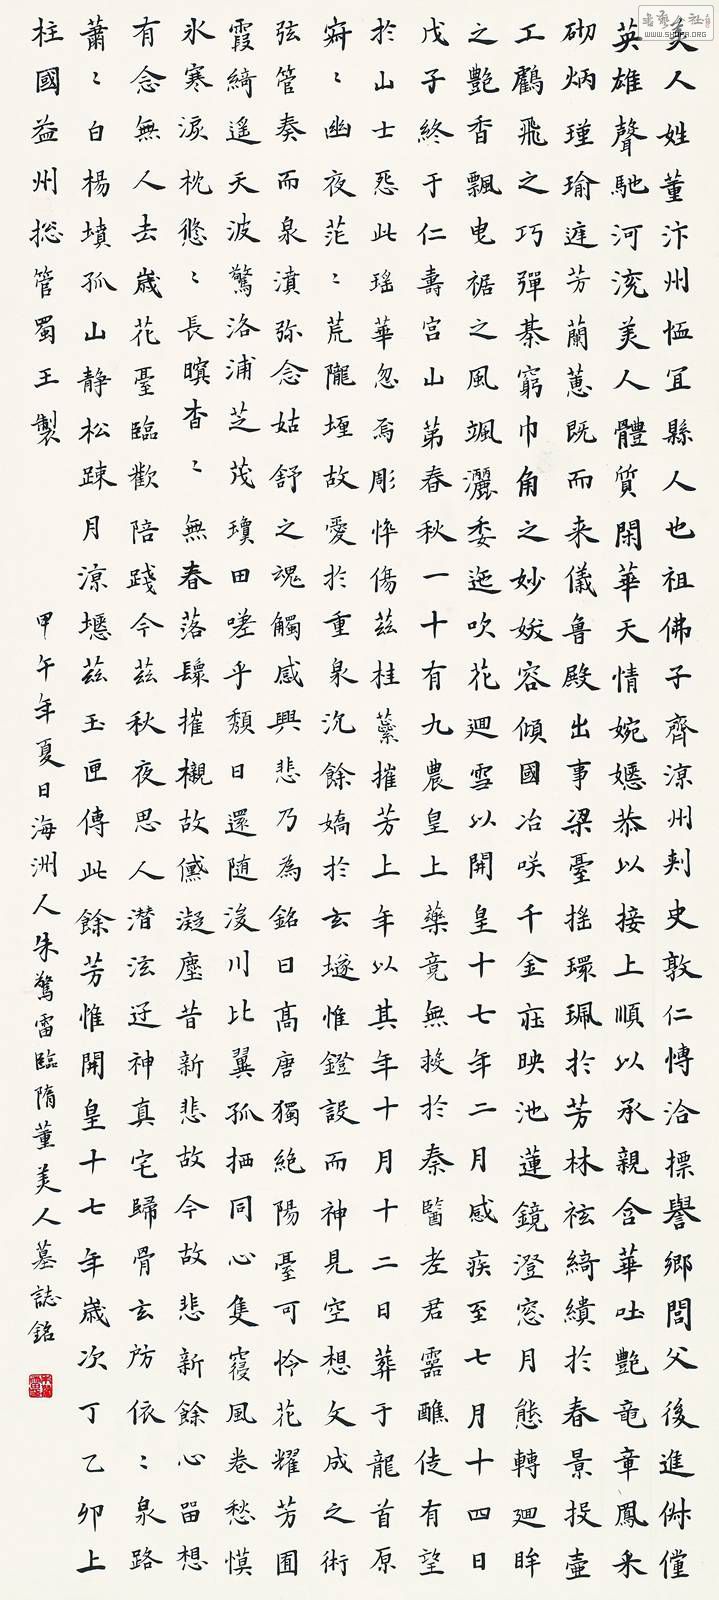 美人姓董汴州恤宜縣人也祖佛子齊涼州刾史敦仁愽洽摽譽鄉閭父後進俶儻
英雄聲馳河渷美人體質閑華天情婉嫕恭以接上順以承親含華吐艷竜章鳳采
砌炳瑾瑜庭芳蘭蕙既而来儀魯殿出事梁臺摇環珮於芳林袨綺繢於春景投壷
工鸖飛之巧彈棊窮巾角之妙妭容傾國冶咲千金莊映池蓮鏡澄窓月態轉廻眸
之艷香飄曳裾之風颯灑委迤吹花廻雪以開皇十七年二月感疾至七月十四日
戊子終于仁壽宫山第春秋一十有九農皇上藥竟無捄於秦醫老君靈醮徒有望
於山士怨此瑶華忽焉彫悴傷兹桂蘂摧芳上年以其年十月十二日葬于龍首原
寂〻幽夜茫〻荒隴埋故愛於重泉沉餘嬌於玄墜惟鐙設而神見空想文成之術
弦管奏而泉濆弥念姑舒之魂觸感興悲乃為銘曰高唐獨絶陽臺可怜花耀芳囿
霞綺遥天波驚洛浦芝茂瓊田嗟乎頽日還随浚川比翼孤栖同心隻寢風卷愁慔
氷寒淚枕悠〻長暝杳〻無春落鬟摧櫬故黛凝塵昔新悲故今故悲新餘心留想
有念無人去歳花臺臨歡陪踐今兹秋夜思人潜泫迂神真宅歸骨玄房依〻泉路
蕭〻白楊墳孤山静松踈月涼兹玉匣傳此餘芳惟開皇十七年歳次丁乙卯上
柱國益州捴管蜀王製
甲午年夏日海洲人朱驚雷臨隋董美人墓誌銘
WWW.SHUFA.ORG